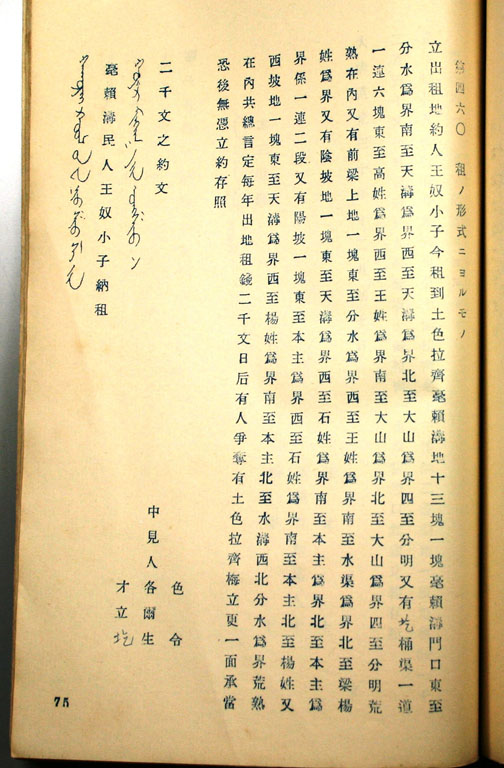 第四六〇　租ノ形式ニヨルモノ
立出租地約人王奴小子今租到土色拉齊毫賴溝地十三塊一塊毫賴溝門口東至
分水爲界南至天溝爲界西至天溝爲界北至大山爲界四至分明又有圪桶渠一道
一連六塊東至高姓爲界西至王姓爲界南至大山爲界北至大山爲界四至分明荒
熟在內又有前梁上地一塊東至分水爲界西至王姓爲界南至水渠爲界北至梁楊
姓爲界又有陰坡地一塊東至天溝爲界西至石姓爲界南至本主爲界北至本主爲
界係一連二段又有陽坡一塊東至本主爲界西至石姓爲界南至本主北至楊姓又
西坡地一塊東至天溝爲界西至楊姓爲界南至本主北至水溝西北分水爲界荒熟
在內共總言定每年出地租錢二千文日后有人爭奪有土色拉齊梅立更一面承當
恐後無憑立約存照
色令
中見人各爾生
才立圪
二千文之約文
毫賴溝民人王奴小子納租
75